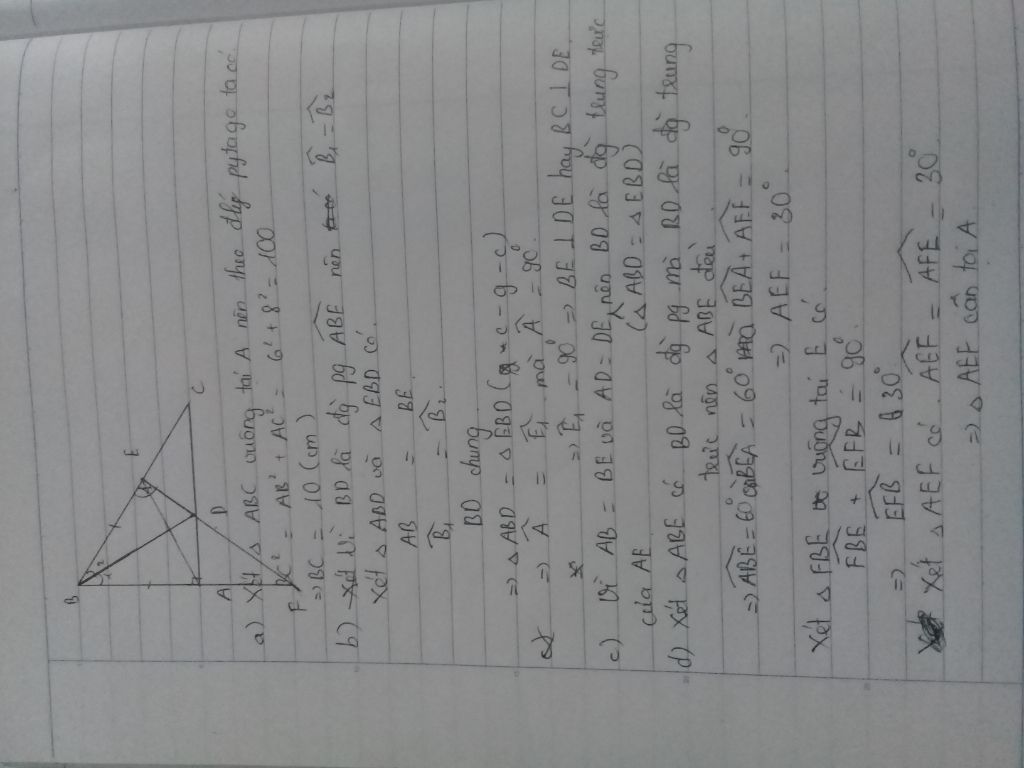 B
1 2
E
C
A
D
F
a) Xét △ ABC vuông tại A nên theo đlý pytago ta có
BC² = AB² + AC² = 6² + 8² = 100
⇒ BC = 10 (cm)
b) Vì BD là đg pg ABE nên B̂₁ = B̂₂
Xét △ ABD và △ EBD có
AB = BE
B̂₁ = B̂₂
BD chung
⇒ △ ABD = △ EBD (c - g - c)
⇒ Â = Ê₁ mà Â = 90°
⇒ Ê₁ = 90° ⇒ BE ⊥ DE hay BC ⊥ DE
c) Vì AB = BE và AD = DE nên BD là đg trung trực
của AE (△ ABD = △ EBD)
d) Xét △ ABE có BD là đg pg mà BD là đg trung
trực nên △ ABE đều
⇒ ABE = 60° BEA = 60° mà BEA + AEF = 90°
⇒ AEF = 30°
Xét △ FBE vuông tại E có
FBE + EFB = 90°
⇒ EFB = 30°
Xét △ AEF có AEF = AFE = 30°
⇒ △ AEF cân tại A